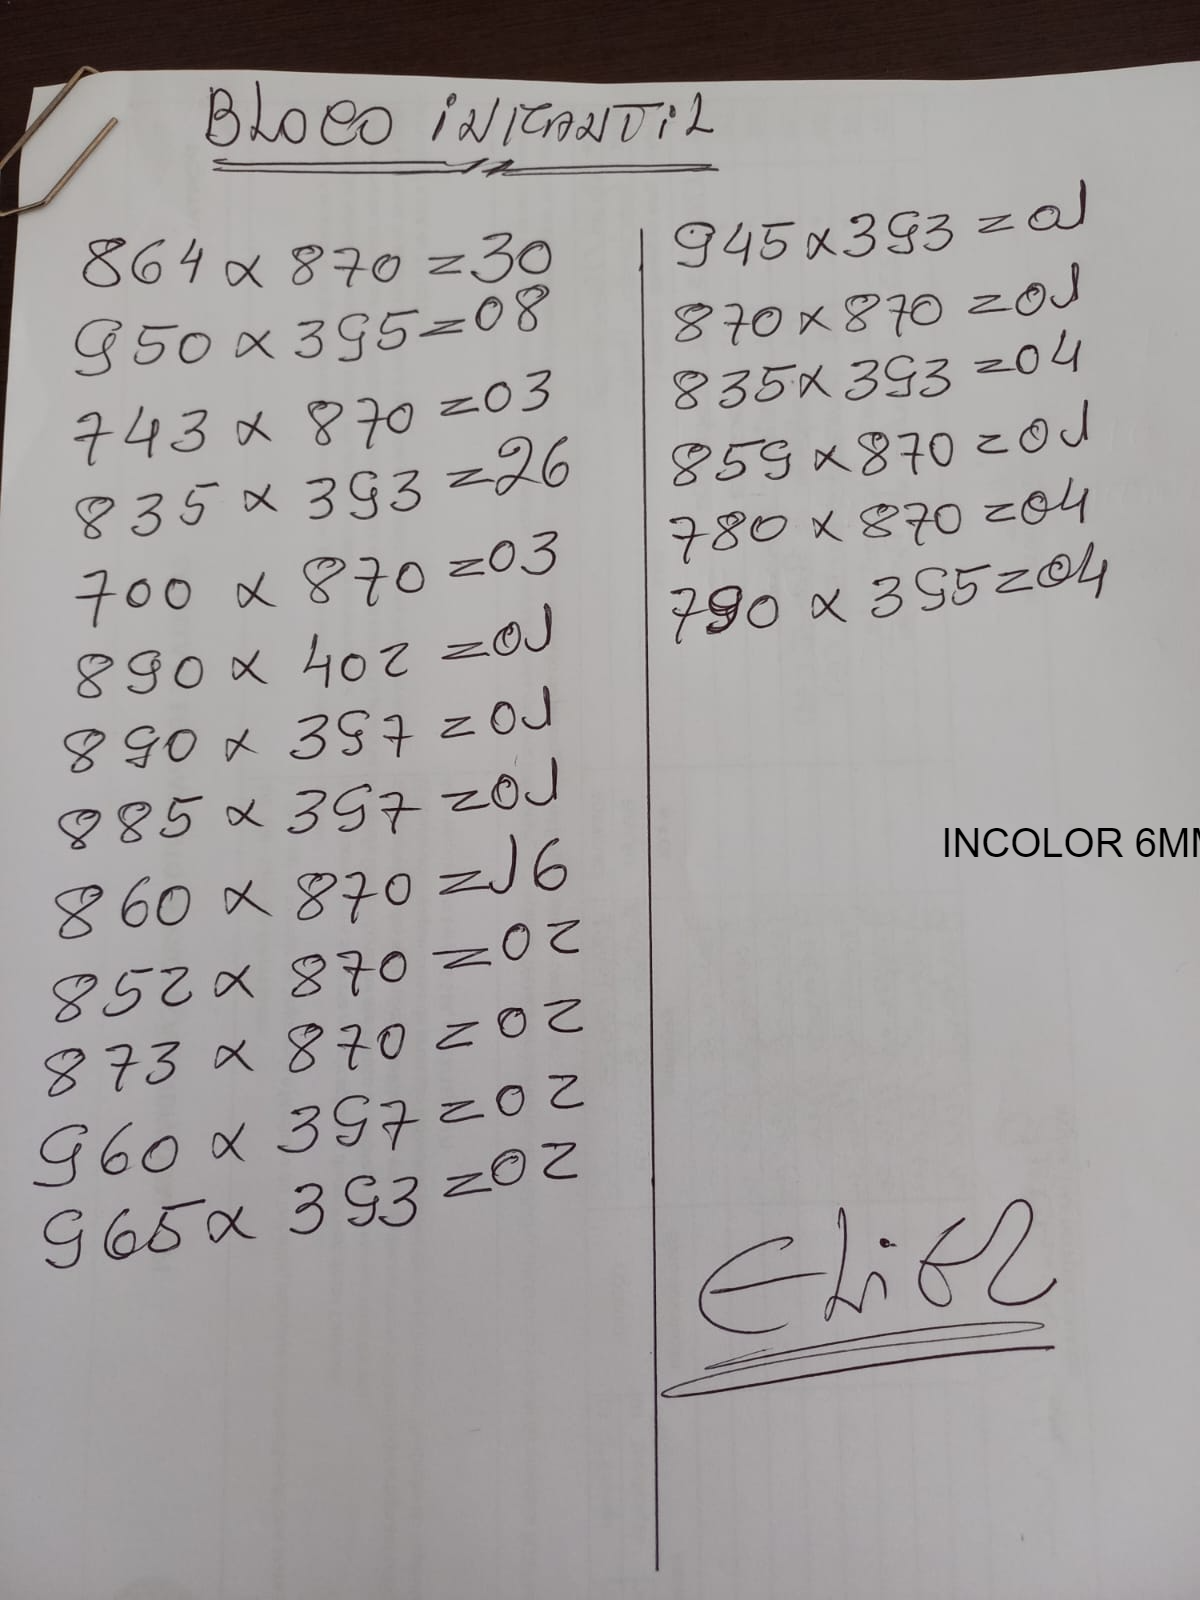 BLOCO INFANTIL
864 x 870 = 30
950 x 395 = 08
743 x 870 = 03
835 x 393 = 26
700 x 870 = 03
890 x 402 = 01
890 x 397 = 01
885 x 397 = 01
860 x 870 = 16
852 x 870 = 02
873 x 870 = 02
960 x 397 = 02
965 x 393 = 02
945 x 393 = 01
870 x 870 = 01
835 x 393 = 04
859 x 870 = 01
780 x 870 = 04
790 x 395 = 04
INCOLOR 6MM